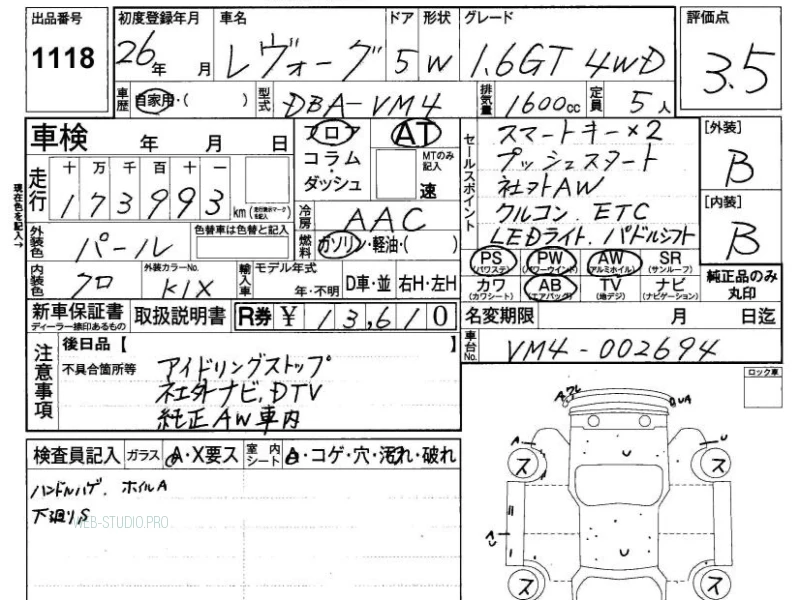 出品番号 初度登録年月 車名 ドア 形状 グレード 評価点
1118 26年 月 レヴォーグ 5 W 1.6GT 4WD 3.5
車歴 自家用・( ) 型式 DBA-VM4 排気量 1600cc 定員 5人
車検 年 月 日
フロア コラム・ダッシュ
AT MTのみ記入 速
セールスポイント
スマートキー×2
プッシュスタート
社外AW
クルコン. ETC
LEDライト. パドルシフト
[外装]
B
[内装]
B
現在色を記入→
走行 十 万 千 百 十 一
173993 km (走行表示マークを記入)
冷房 AAC
外装色 パール 色替車は色替と記入
燃料 ガソリン・軽油・( )
内装色 クロ 外装カラーNo. K1X 輸入車 モデル年式 年・不明 D車・並 右H・左H
PS (パワステ) PW (パワーウインド) AW (アルミホイル) SR (サンルーフ)
カワ (カワシート) AB (エアバック) TV (地デジ) ナビ (ナビゲーション)
純正品のみ丸印
新車保証書 ディーラー捺印あるもの 取扱説明書 R券 ¥ 13,610
名変期限 月 日迄
車台No. VM4-002694
注意事項
後日品【 】
不具合箇所等 アイドリングストップ
社外ナビ.DTV
純正AW車内
ロック車
検査員記入 ガラス A・X要ス 室内シート A・コゲ・穴・汚れ・破れ
ハンドルハゲ. ホイルA
下廻りS
WEB-STUDIO.PRO
ス ス
ス ス